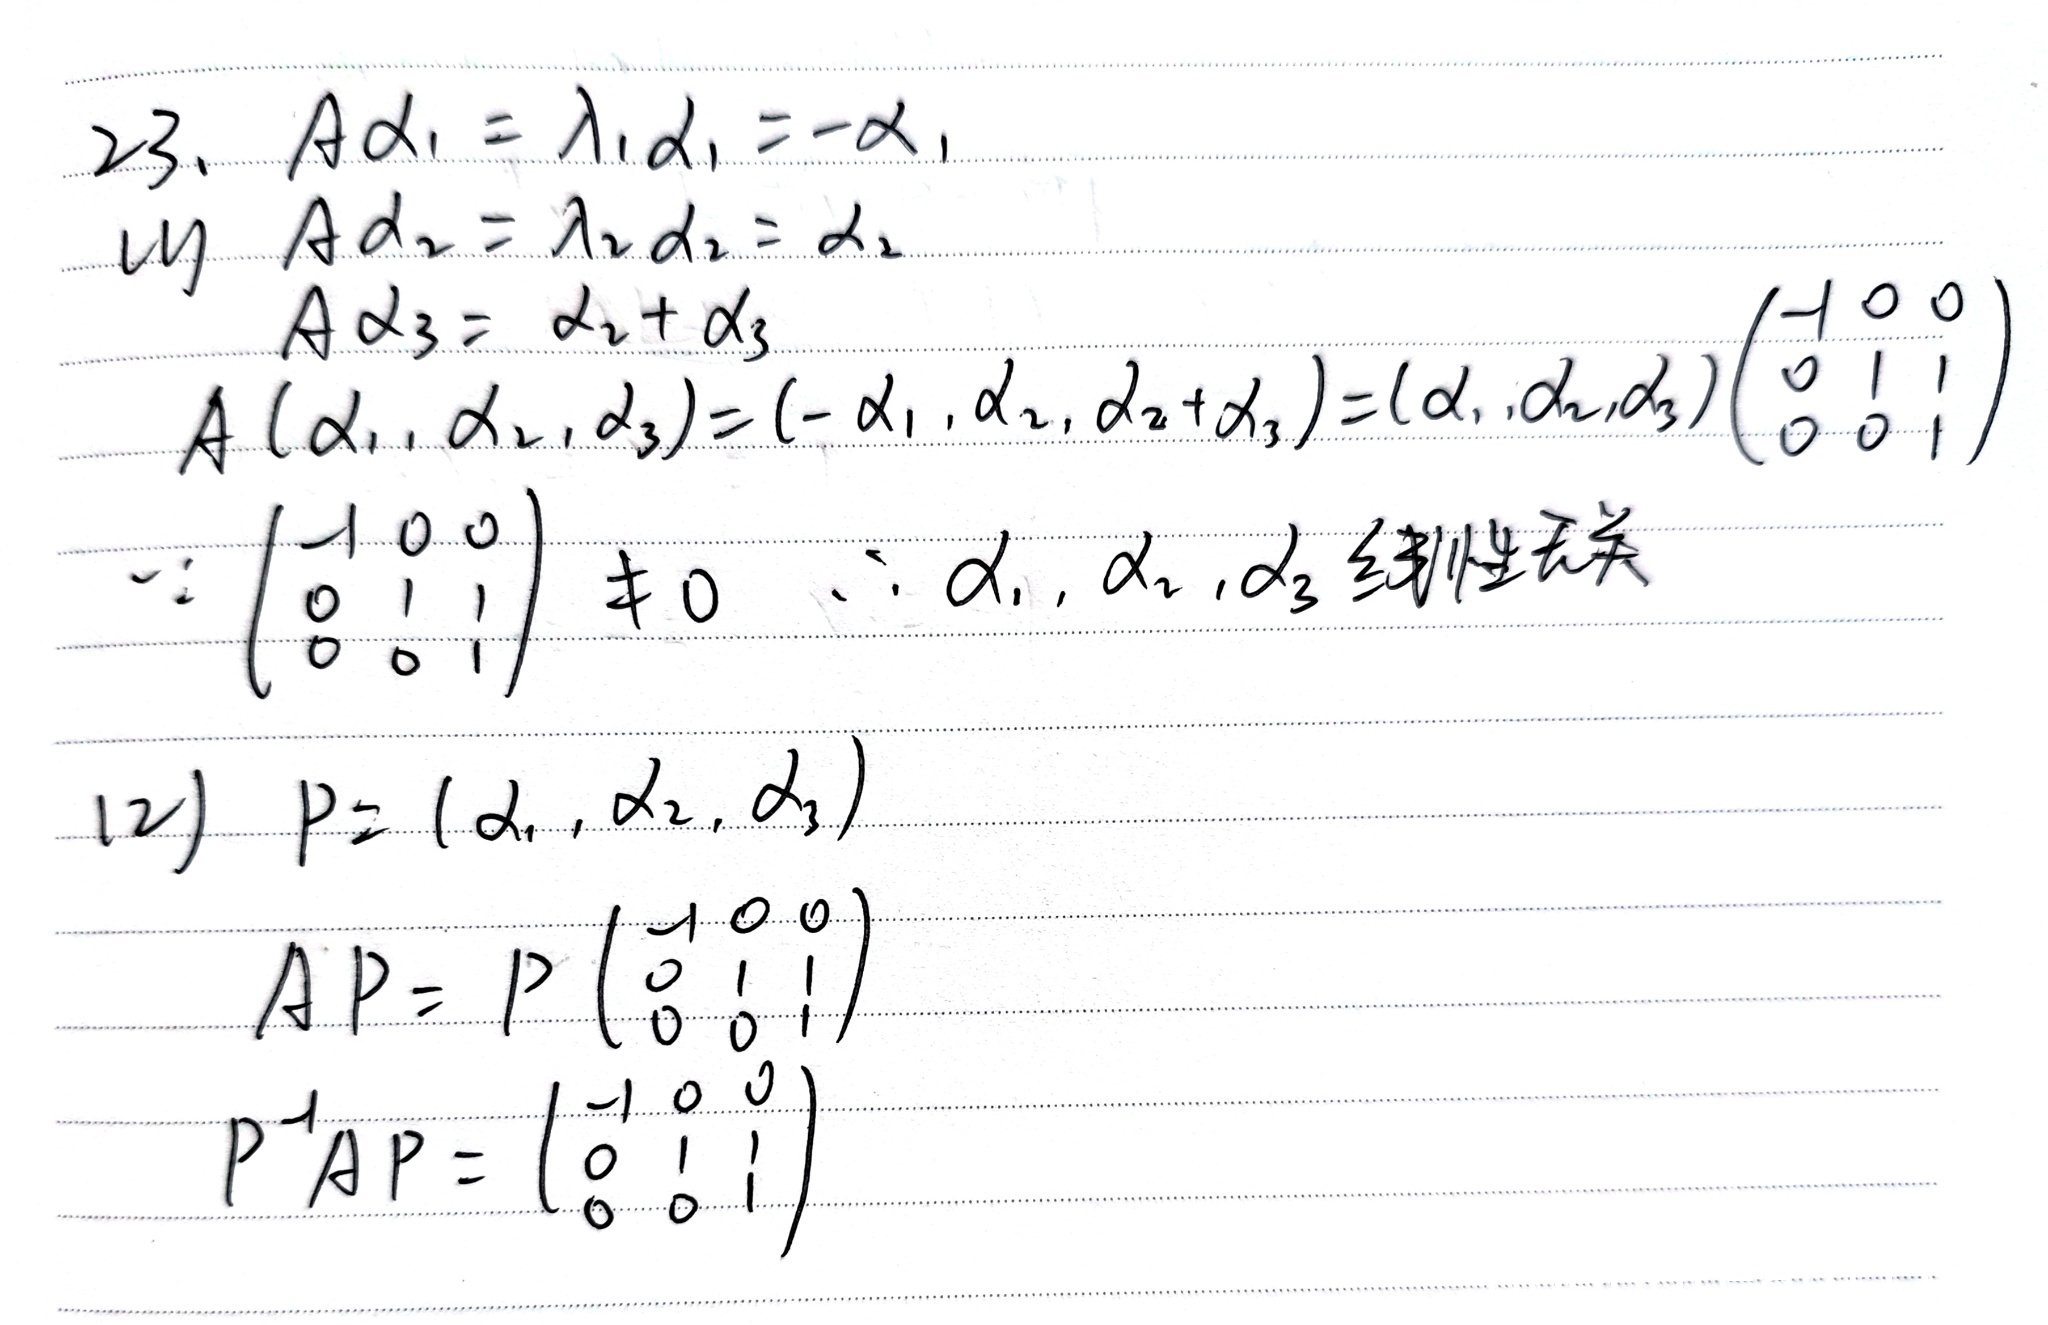 23. Aα₁ = λ₁α₁ = -α₁
(1) Aα₂ = λ₂α₂ = α₂
Aα₃ = α₂ + α₃
A(α₁, α₂, α₃) = (-α₁, α₂, α₂+α₃) = (α₁, α₂, α₃) (-1 0 0
0 1 1
0 0 1)
∵ (-1 0 0
0 1 1
0 0 1) ≠ 0 ∴ α₁, α₂, α₃ 线性无关
(2) P = (α₁, α₂, α₃)
AP = P (-1 0 0
0 1 1
0 0 1)
P⁻¹AP = (-1 0 0
0 1 1
0 0 1)